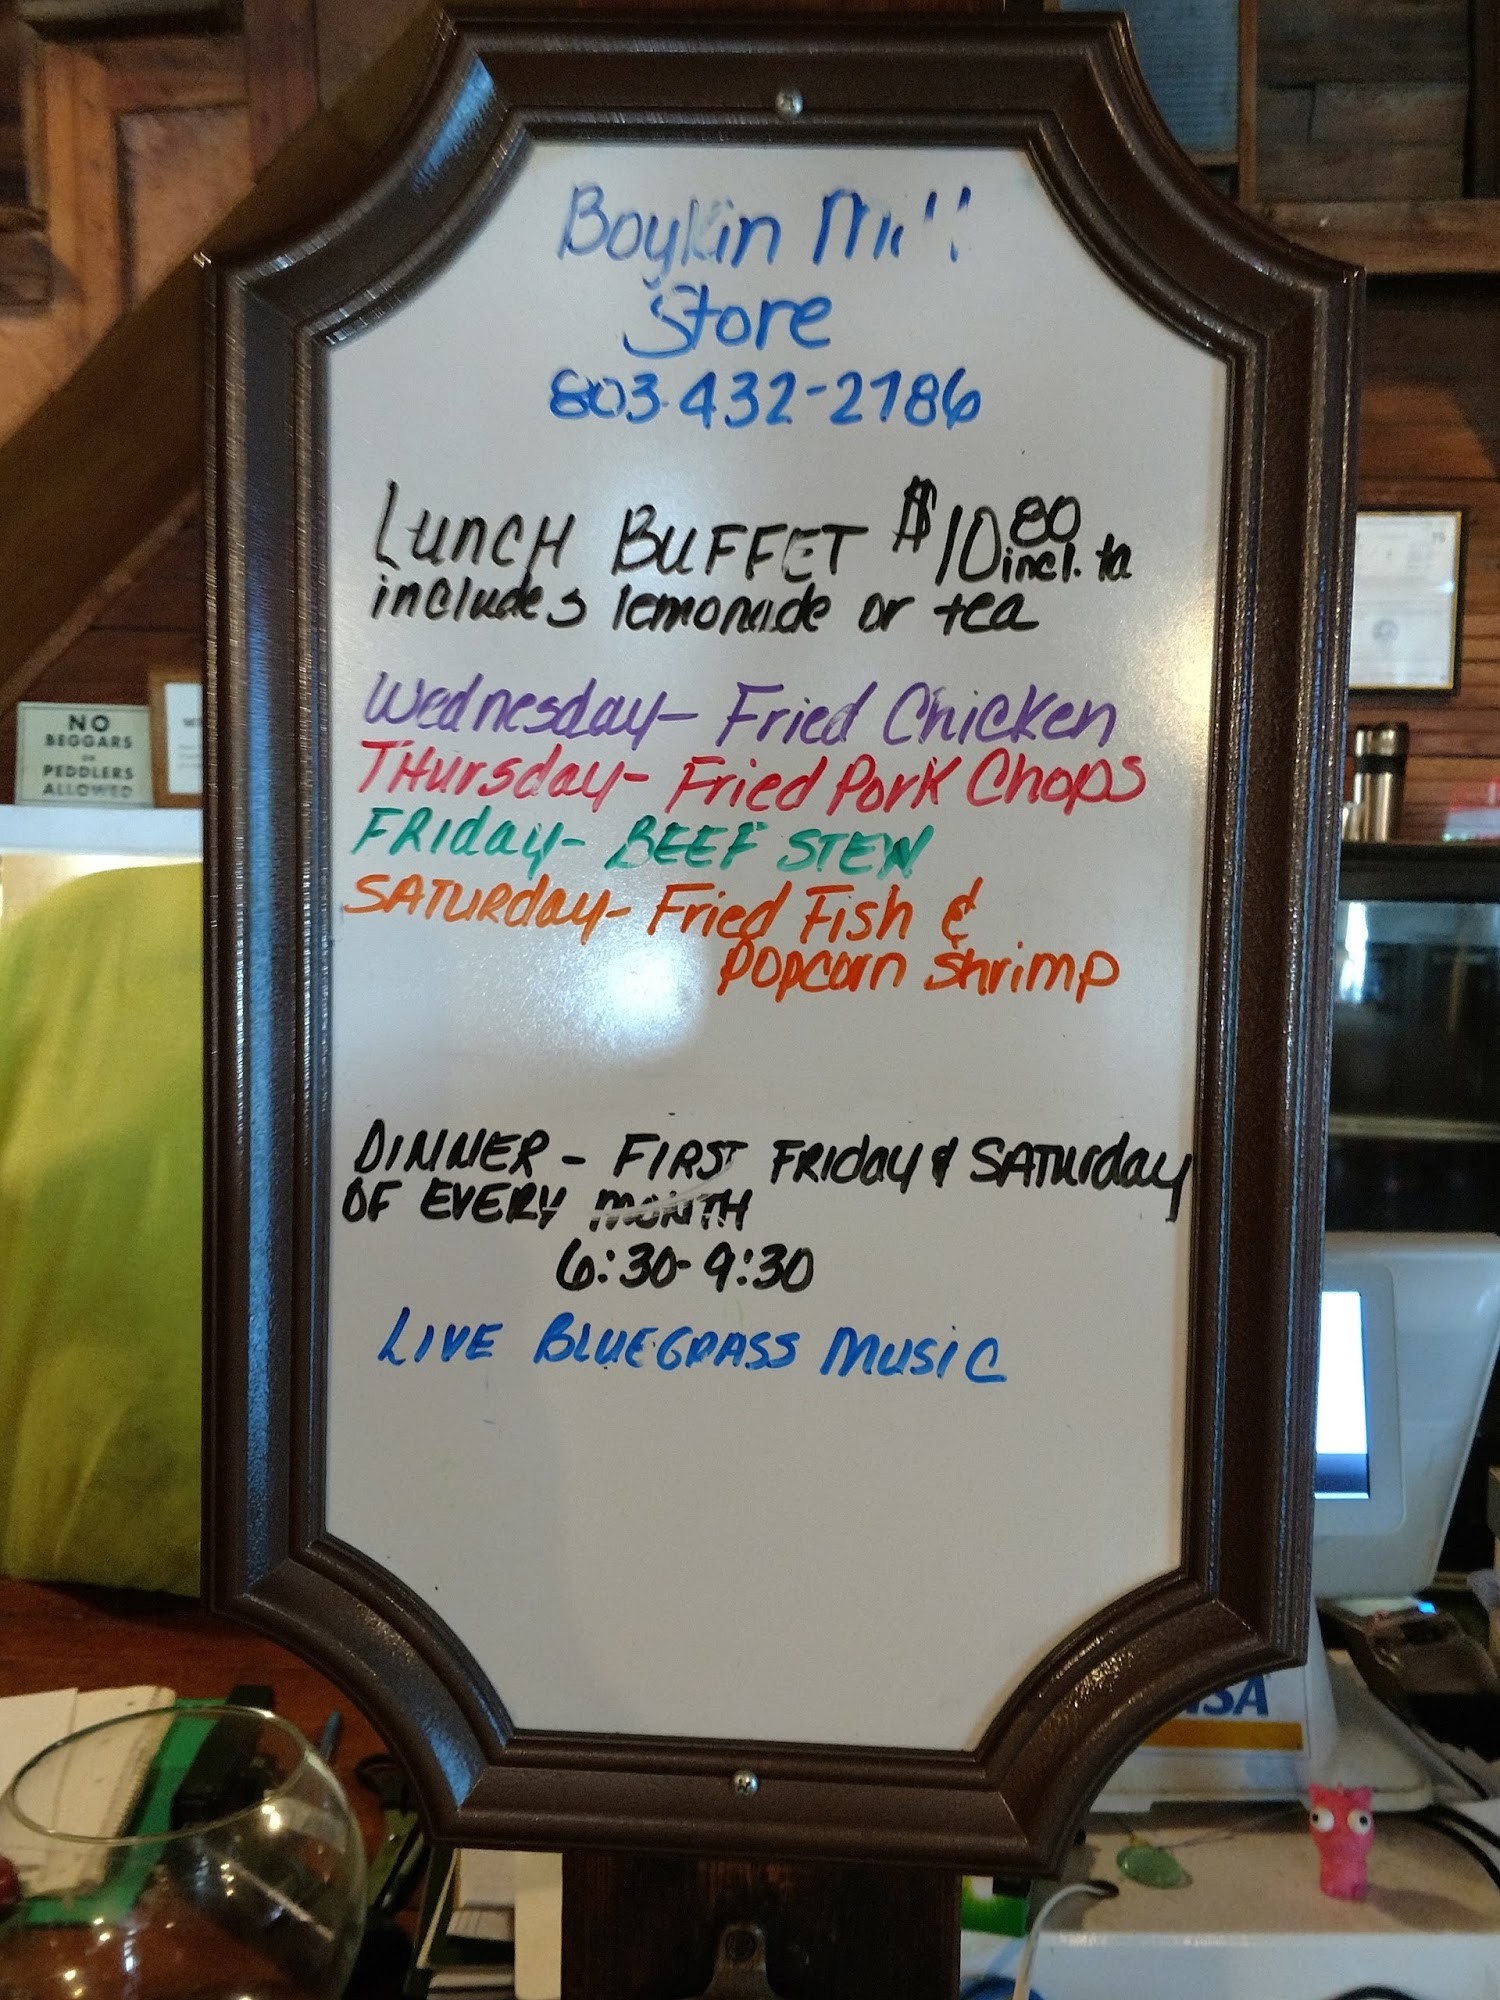 Boykin Mill
Store
803-432-2786
LUNCH BUFFET $10 80 incl. ta
includes lemonade or tea
Wednesday- Fried Chicken
THursday- Fried Pork Chops
FRIday- BEEF STEW
SATURday- Fried Fish &
Popcorn Shrimp
DINNER - FIRST FRIday & SATurday
OF EVERY MONTH
6:30-9:30
LIVE BLUEGRASS MUSIC
NO
BEGGARS
OR
PEDDLERS
ALLOWED